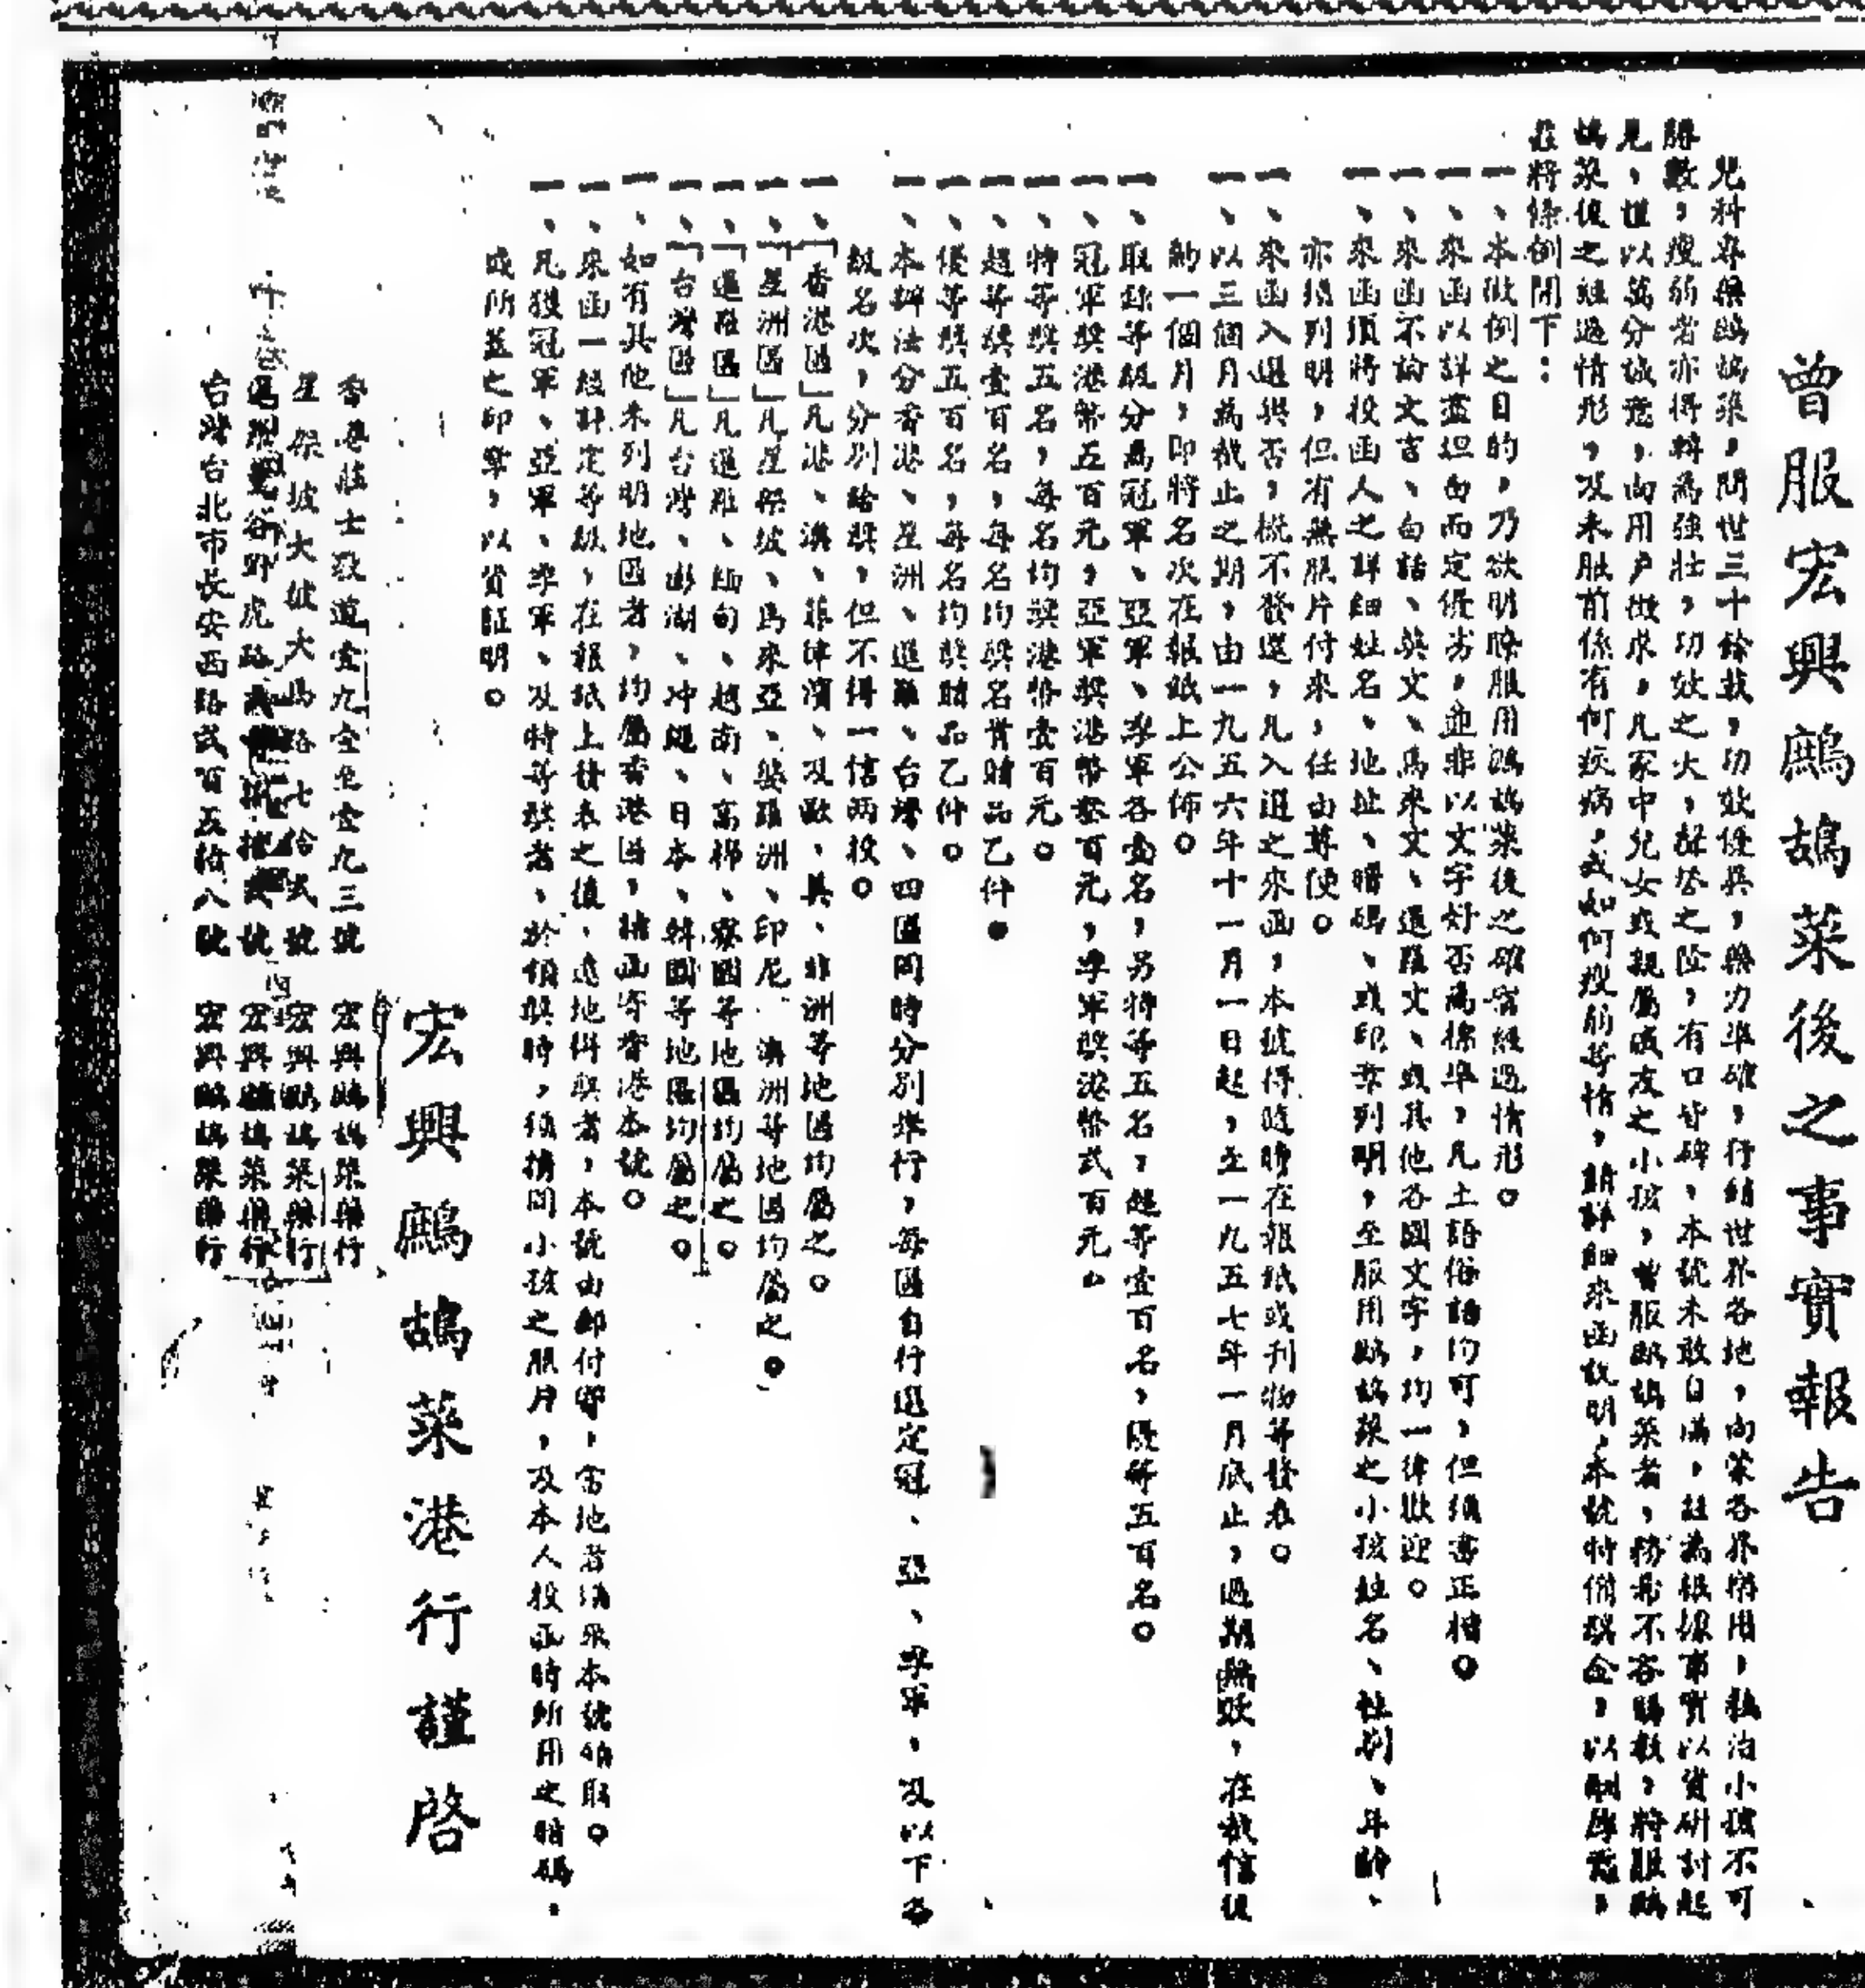 曾服宏興鷓鴣菜後之事實報告
兒科專藥鷓鴣菜，問世三十餘載，功效優異，藥力準確，行銷世界各地，向蒙各界採用，救治小孩不可
勝數，瘦弱者亦得轉為強壯，功效之大，之陰，有口皆碑，本號未敢自滿，茲為根據事實以資研討起
見，謹以萬分誠意，向用戶徵求，凡家中兒女或親屬戚友之小孩，曾服鷓鴣菜者，務希不吝賜教，將服鷓
鴣菜後之經過情形，及未服前係有何疾病，或如何瘦弱等情，請詳細來函說明，本號特備獎金，以酬厚意，
茲將條例開下：
一、本徵例之目的，乃欲明瞭服用鷓鴣菜後之確實經過情形。
一、來函以詳盡坦白而定優劣，並非以文字好否為標準，凡土語俗語均可，但須書正楷。
一、來函不論文言、白話、英文、馬來文、暹羅文、或其他各國文字，均一律歡迎。
一、來函須將投函人之詳細姓名、地址、暗碼、或印章列明，至服用鷓鴣菜之小孩姓名、性別、年齡、
亦須列明，但有無照片付來，任由尊便。
一、來函入選與否，概不發還，凡入選之來函，本號得隨時在報紙或刊物等發表。
一、以三個月為截止之期，由一九五六年十一月一日起，至一九五七年一月底止，過期無效，在截信後
約一個月，即將名次在報紙上公佈。
一、取錄等級分為冠軍、亞軍、季軍各壹名，另特等五名，超等壹百名，優等五百名。
一、冠軍獎港幣五百元，亞軍獎港幣叁百元，季軍獎港幣弍百元。
一、特等獎五名，每名均獎港幣壹百元。
一、超等獎壹百名，每名均獎名貴贈品乙件。
一、優等獎五百名，每名均獎贈品乙件。
一、本辦法分香港、星洲、暹羅、台灣、四區同時分別舉行，每區自行選定冠、亞、季軍，及以下各
級名次，分別給獎，但不得一信兩投。
一、「香港區」凡港、澳、菲律濱、及歐、美、非洲等地區均屬之。
一、「星洲區」凡星架坡、馬來亞、婆羅洲、印尼、澳洲等地區均屬之。
一、「暹羅區」凡暹羅、緬甸、越南、高棉、寮國等地區均屬之。
一、「台灣區」凡台灣、澎湖、沖繩、日本、韓國等地區均屬之。
一、如有其他未列明地區者，均屬香港區，請函寄香港本號。
一、來函一經評定等級，在報紙上發表之後，遠地得獎者，本號由郵付寄，當地者請來本號領取。
一、凡獲冠軍、亞軍、季軍、及特等獎者、於領獎時，須携同小孩之照片，及本人投函時所用之暗碼，
或所蓋之印章，以資証明。
宏興鷓鴣菜港行謹啓
香港莊士敦道壹九壹至壹九三號　宏興鷓鴣菜藥行
星架坡大坡大馬路七拾弍號　宏興鷓鴣菜藥行
暹羅 谷 虎路 號　宏興鷓鴣菜藥行
台灣台北市長安西路弍百五拾八號　宏興鷓鴣菜藥行